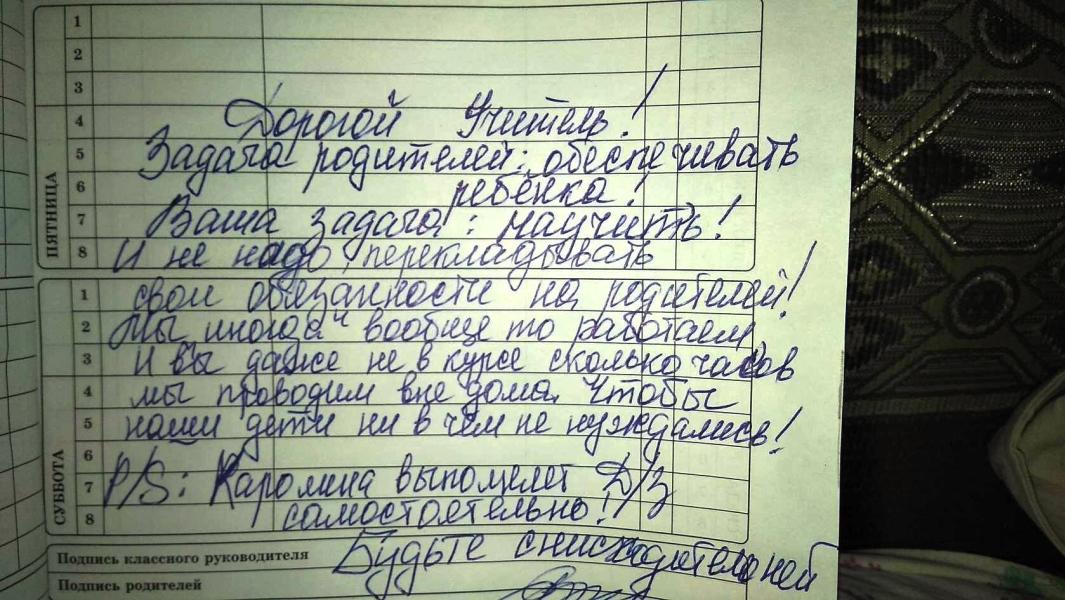 1
2
3
4 Дорогой Учитель!
5 Задача родителей: обеспечивать
6 ребёнка!
7 Ваша задача: научить!
8 И не надо перекладывать
ПЯТНИЦА
1 свои обязанности на родителей!
2 Мы иногда вообще то работаем
3 И вы даже не в курсе сколько часов
4 мы проводим вне дома. Чтобы
5 наши дети ни в чём не нуждались!
6
7 P/S: Каролина выполнет Д/З
8 самостоятельно!!
СУББОТА
Подпись классного руководителя Будьте снисходительней
Подпись родителей